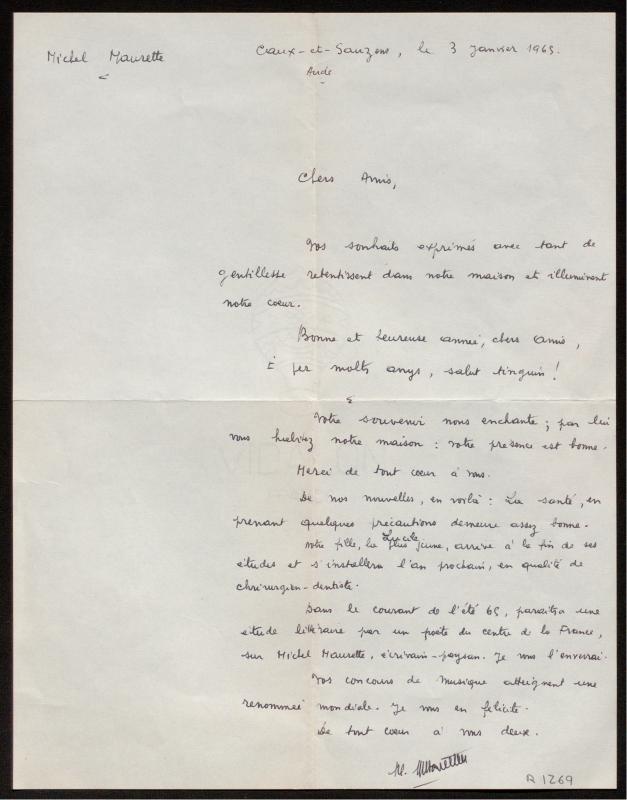 Michel Maurette
Caux-et-Sauzens, le 3 janvier 1965.
Aude
Chers Amis,
Vos souhaits exprimés avec tant de
gentillesse retentissent dans notre maison et illuminent
notre coeur.
Bonne et heureuse année, chers Amis,
I per molts anys, salut tinguin !
Votre souvenir nous enchante ; par lui
vous habitez notre maison : votre présence est bonne.
Merci de tout coeur à vous.
De nos nouvelles, en voilà : La santé, en
prenant quelques précautions demeure assez bonne.
Lucile
Notre fille, la plus jeune, arrive à la fin de ses
études et s'installera l'an prochain, en qualité de
chirurgien-dentiste.
Dans le courant de l'été 65, paraîtra une
étude littéraire par un poète du centre de la France,
sur Michel Maurette, écrivain-paysan. Je vous l'enverrai.
Vos concours de musique atteignent une
renommée mondiale. Je vous en félicite.
De tout coeur à vous deux.
M. Maurette
R 1269